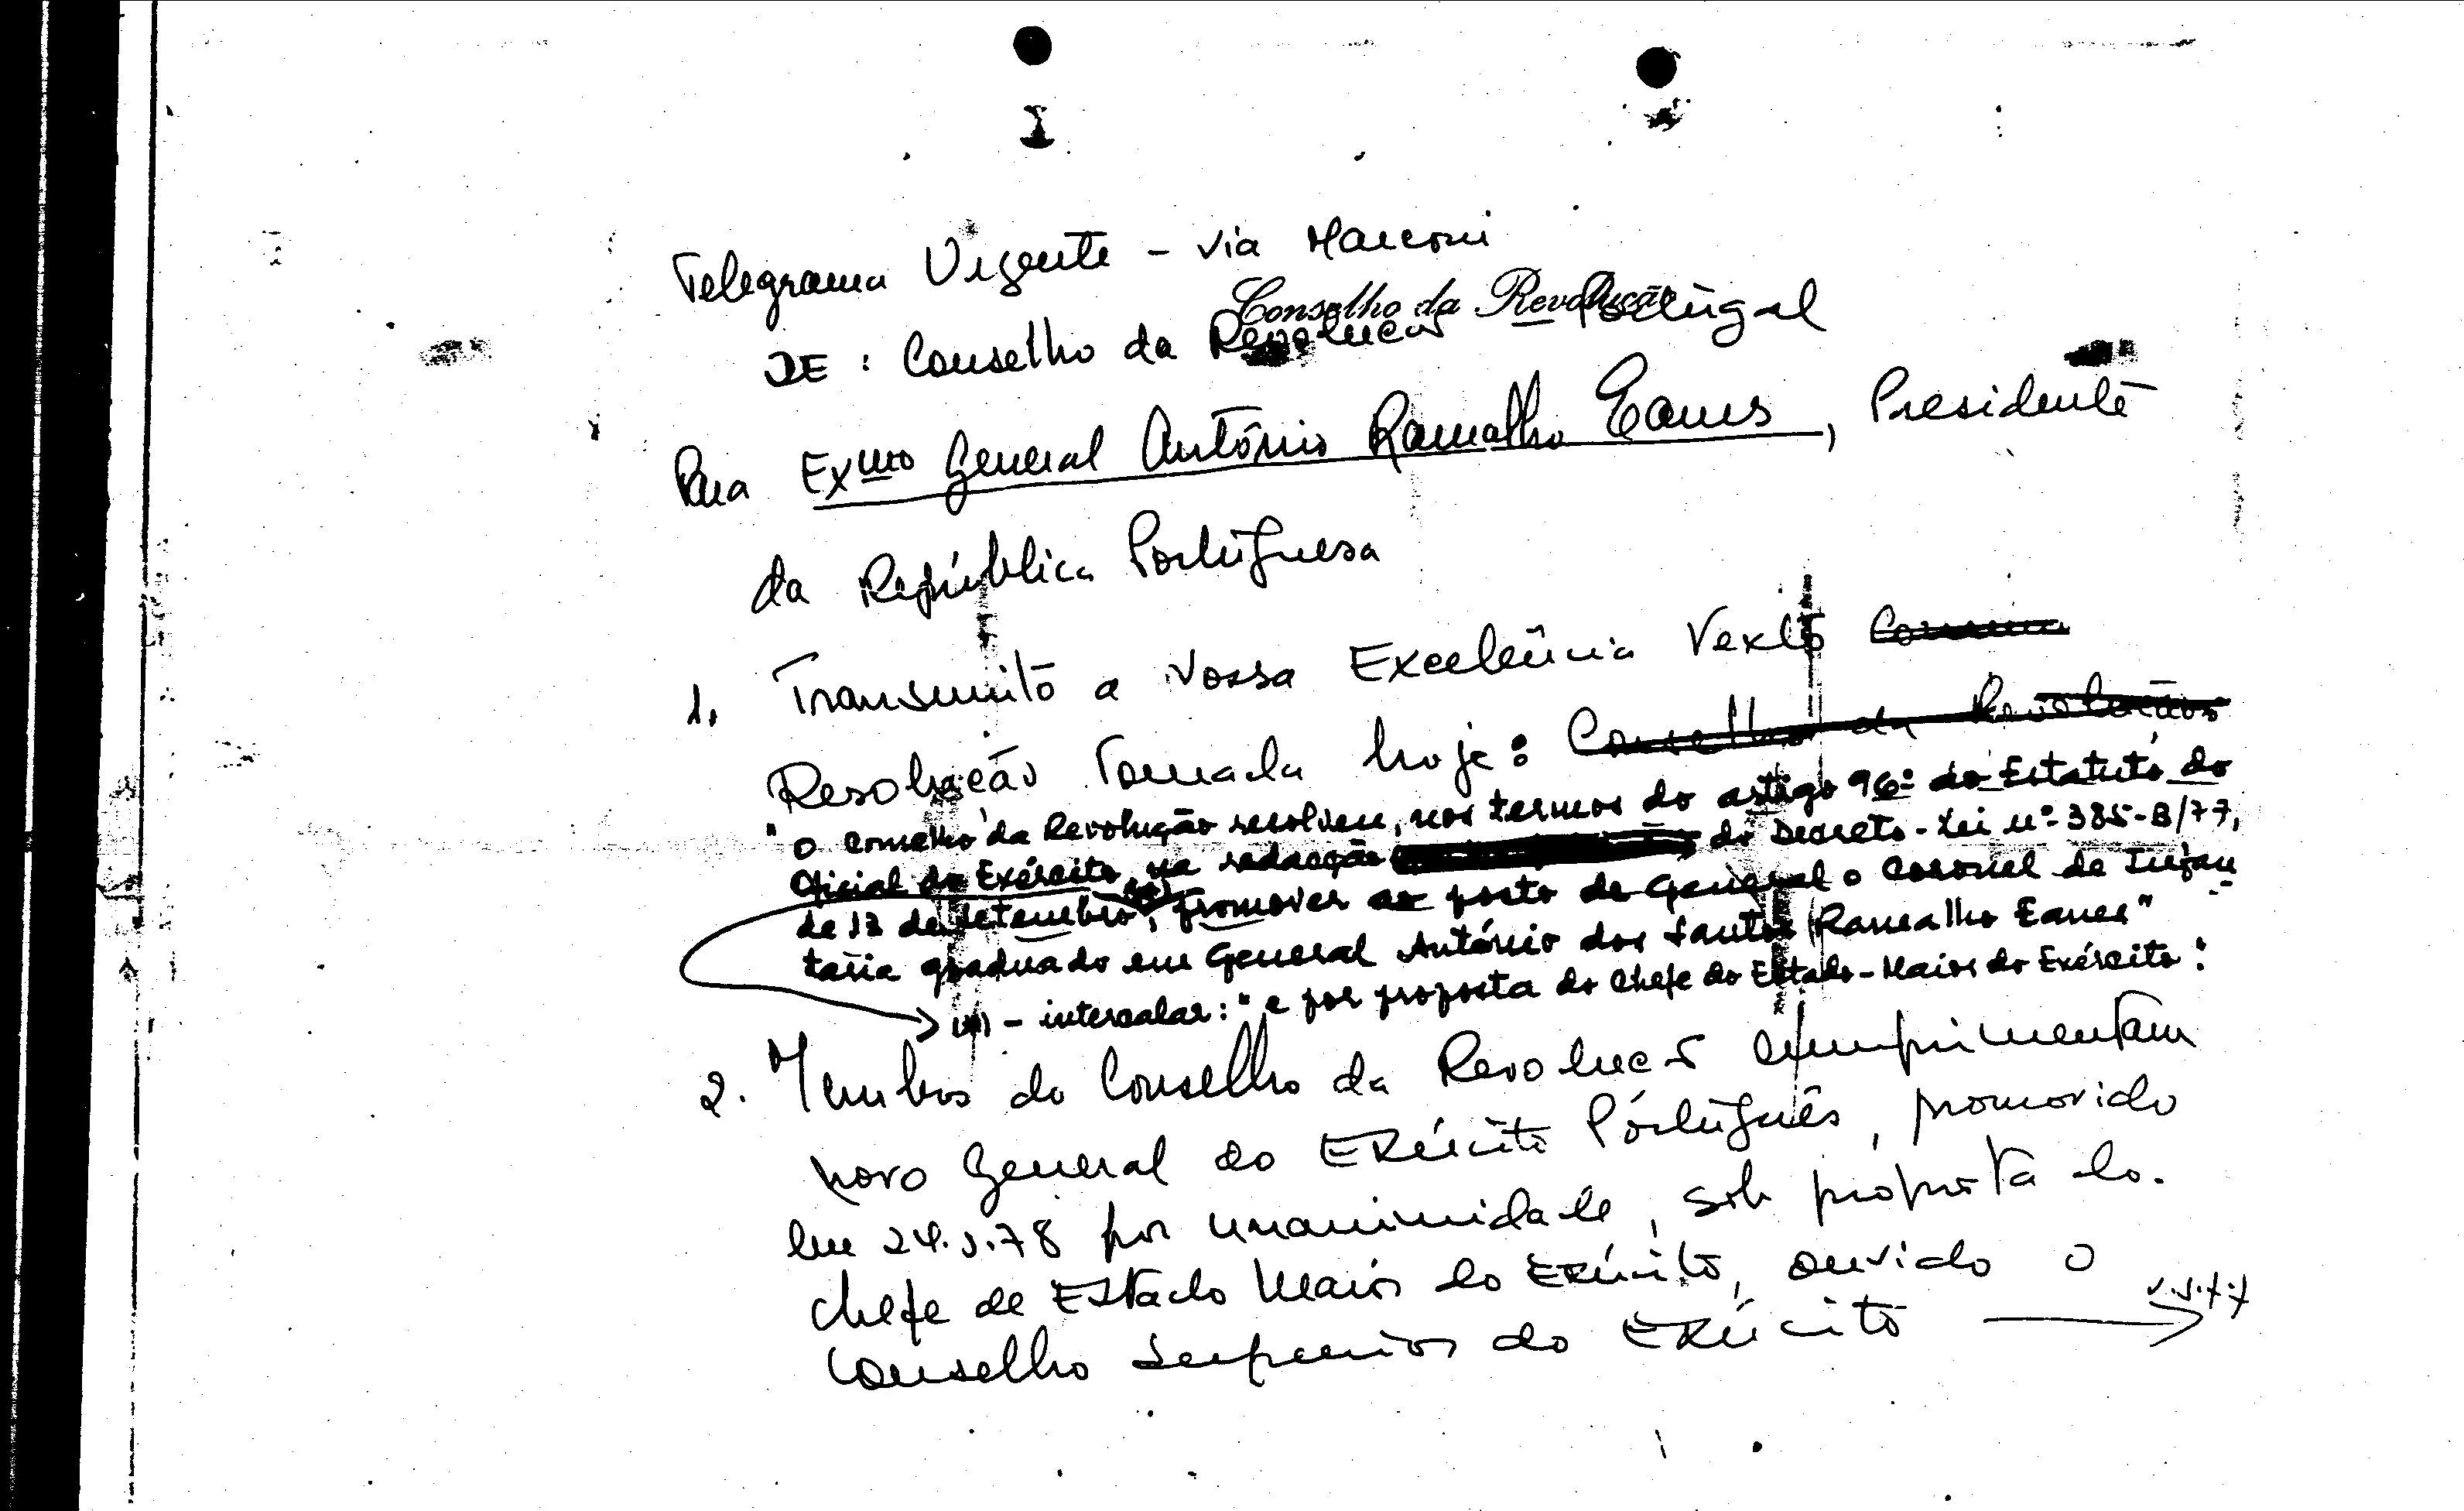 Telegrama Urgente - via Marconi
Conselho da Revolução
DE : Conselho da Revolução Portugal
Para Exmo General António Ramalho Eanes, Presidente
da República Portuguesa
1. Transmito a Vossa Excelência Texto
Resolução Tomada hoje: Conselho da Revolução
"O Conselho da Revolução resolveu, nos termos do artigo 96º do Estatuto do
Oficial do Exército, na redacção do Decreto-Lei nº 385-B/77,
de 13 de setembro, (a) promover ao posto de General o Coronel de Infan-
taria graduado em General António dos Santos Ramalho Eanes"
(a) - intercalar: "e por proposta do Chefe do Estado-Maior do Exército:
2. Membros do Conselho da Revolução cumprimentam
novo General do Exército Português, promovido
em 24.5.78 por unanimidade, sob proposta do.
Chefe de Estado Maior do Exército, ouvido o
Conselho Superior do Exército
v.s.f.f